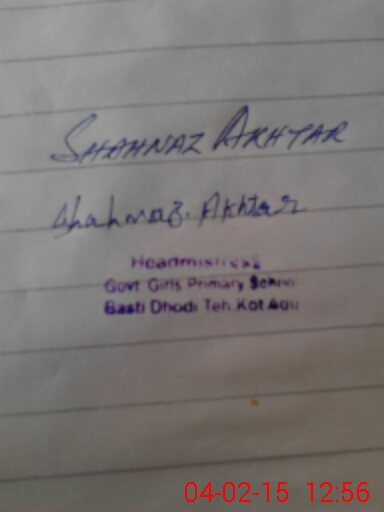 SHAHNAZ AKHTAR
Shahnaz. Akhtar
Headmistress
Govt Girls Primary School
Basti Dhodi Teh. Kot Adu
04-02-15 12:56